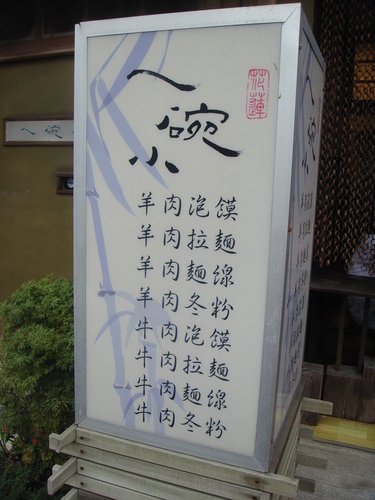 ㄟ碗小
花蓮
羊肉泡饃
羊肉拉麵
羊肉麵線
羊肉冬粉
牛肉泡饃
牛肉拉麵
牛肉麵線
牛肉冬粉
ㄟ碗